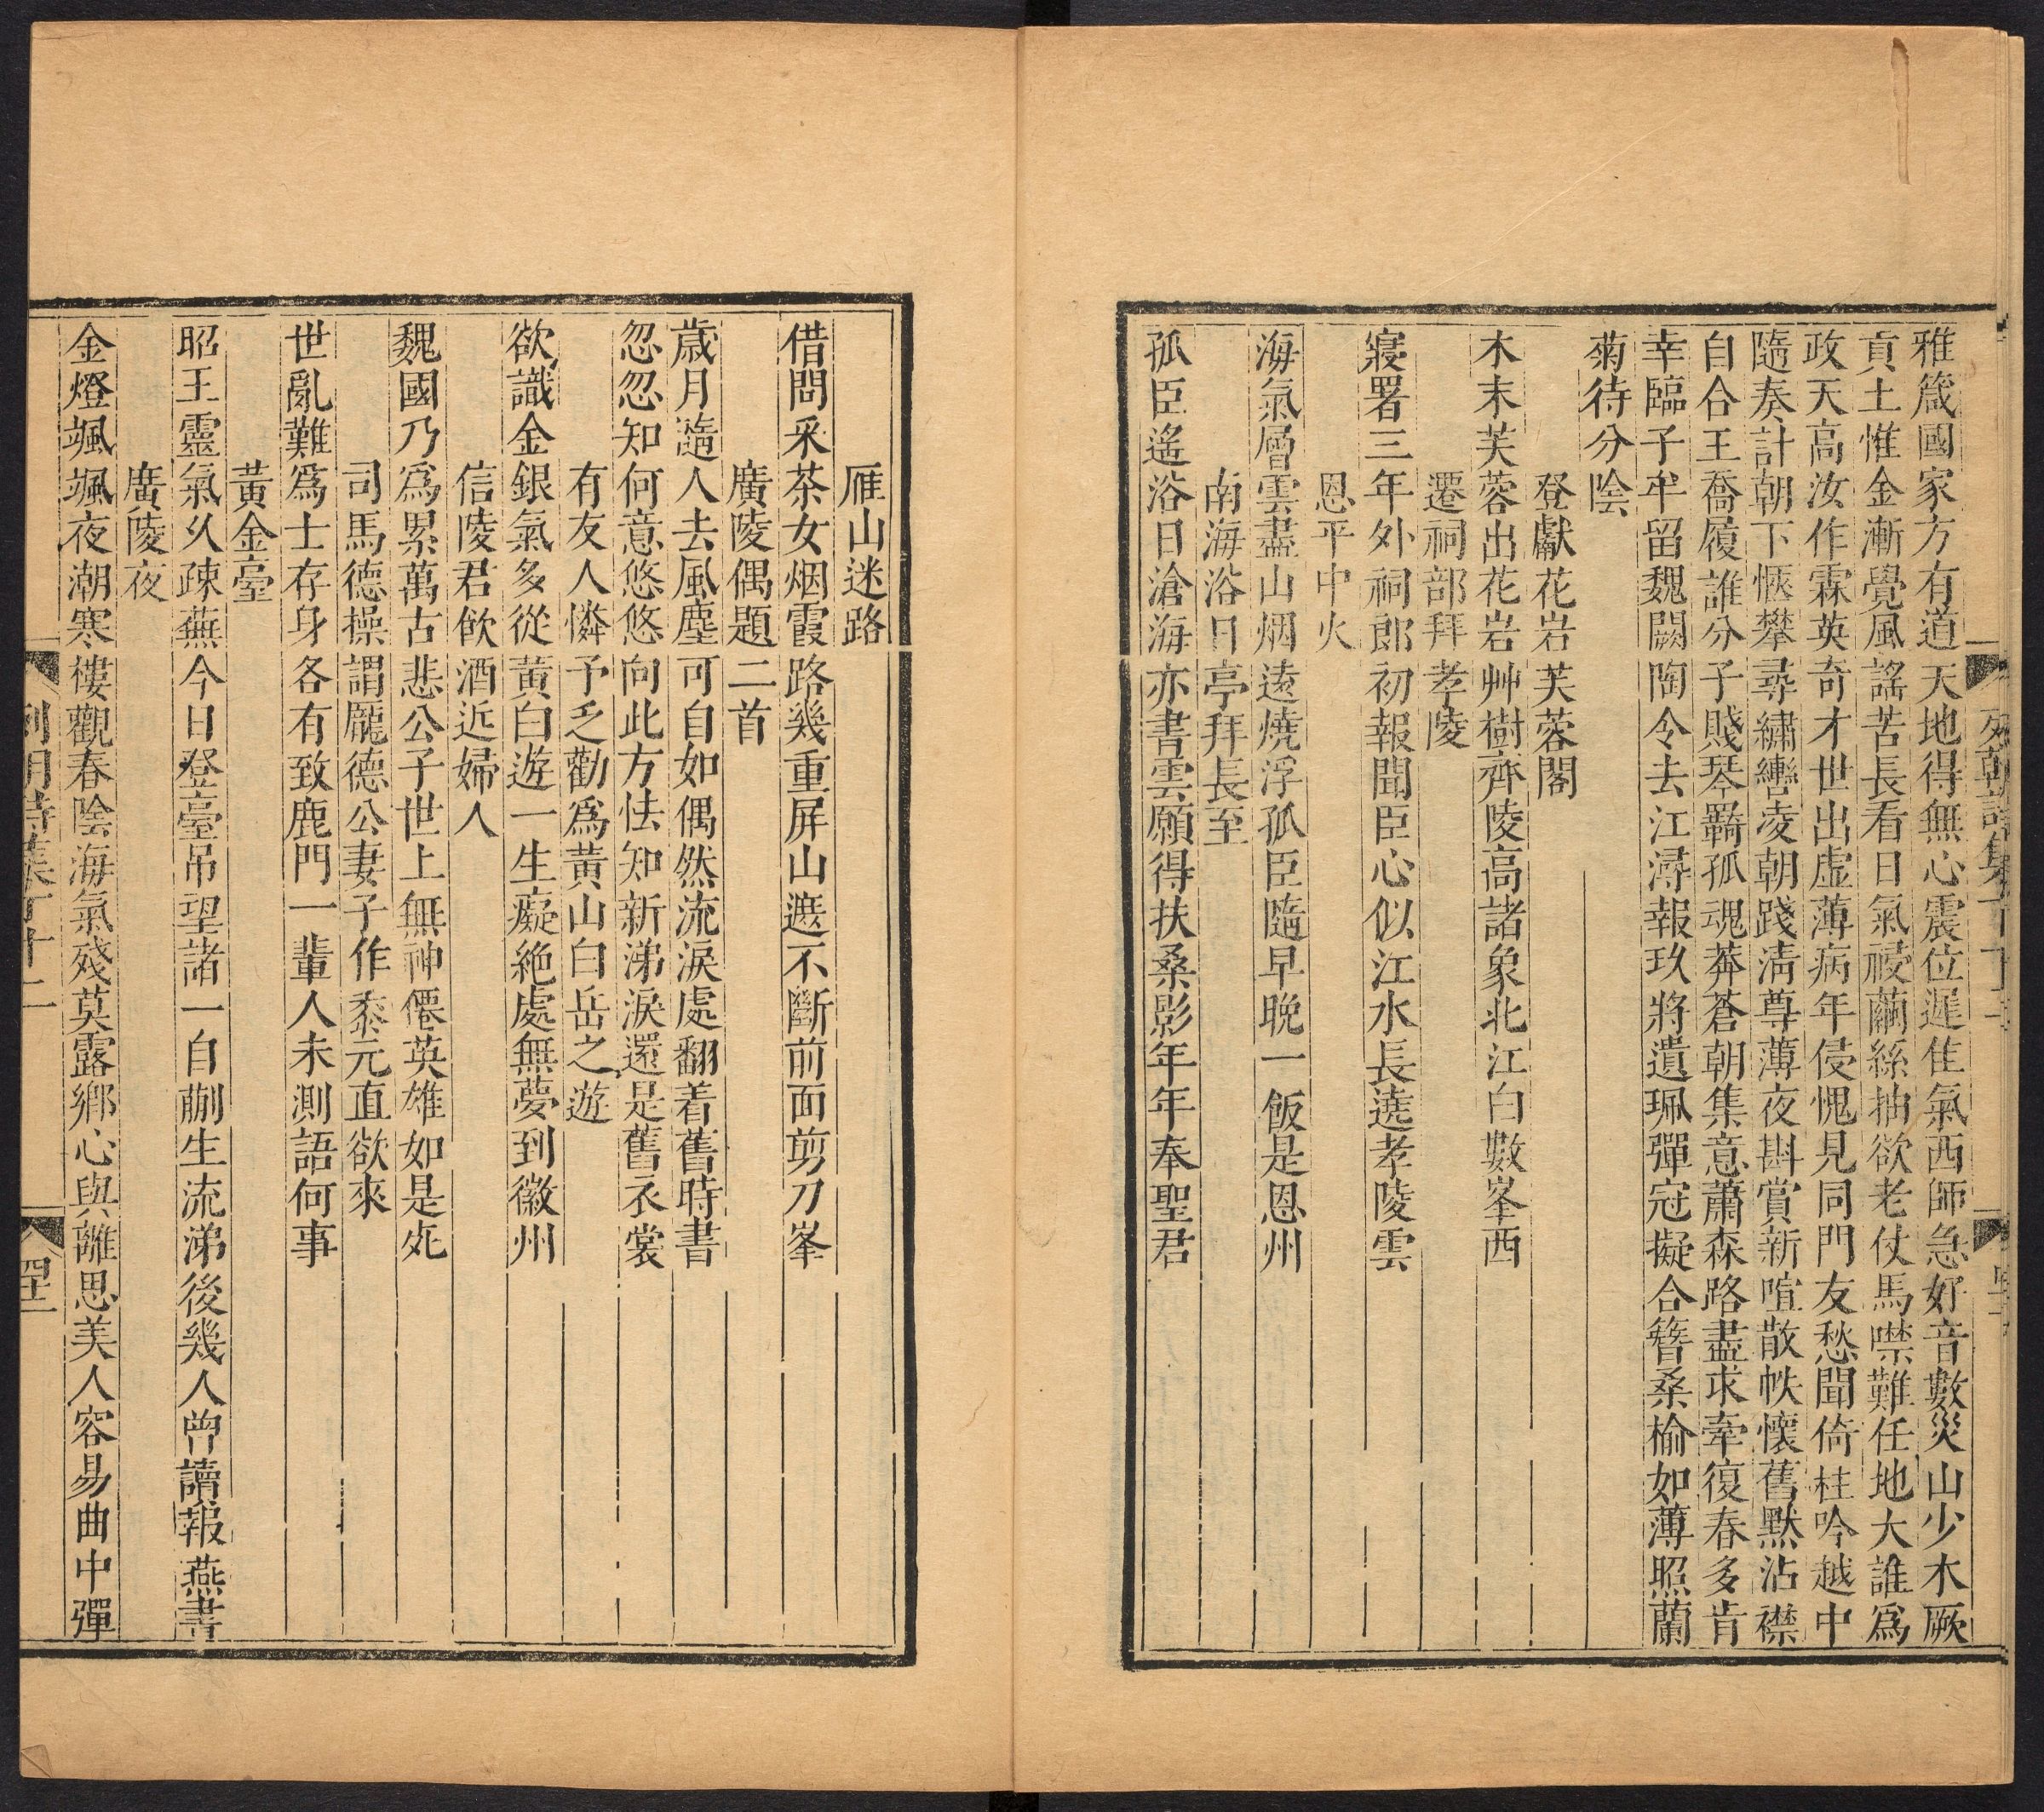 雅箴國家方有道天地得無心震位遲隹氣西師急好音數災山少木厥
貢土惟金漸覺風謠苦長看日氣祲繭絲抽欲老仗馬噤難任地大誰爲
政天高汝作霖英奇才世出虛薄病年侵愧見同門友愁聞倚柱吟越中
隨奏計朝下愜攀尋繡轡凌朝踐淸尊薄夜斟賞新喧散帙懷舊默沾襟
自合王喬履誰分子賤琴羈孤魂莽蒼朝集意蕭森路盡求牽復春多肯
幸臨子牟留魏闕陶令去江潯報玖將遺珮彈冠擬合簪桑榆如薄照蘭
菊待分陰
登獻花岩芙蓉閣
木末芙蓉出花岩艸樹齊陵高諸象北江白數峯西
遷祠部拜孝陵
寢署三年外祠郎初報聞臣心似江水長遶孝陵雲
恩平中火
海氣層雲盡山烟遠燒浮孤臣隨早晚一飯是恩州
南海浴日亭拜長至
孤臣遙浴日滄海亦書雲願得扶桑影年年奉聖君
雁山迷路
借問采茶女烟霞路幾重屏山遮不斷前面剪刀峯
廣陵偶題二首
歲月隨人去風塵可自如偶然流淚處翻着舊時書
忽忽知何意悠悠向此方怯知新涕淚還是舊衣裳
有友人憐予乏勸爲黃山白岳之遊
欲識金銀氣多從黃白遊一生癡絶處無夢到徽州
信陵君飮酒近婦人
魏國乃爲累萬古悲公子世上無神僊英雄如是死
司馬德操謂龐德公妻子作黍元直欲來
世亂難爲士存身各有致鹿門一輩人未測語何事
黃金臺
昭王靈氣久疎蕪今日登臺吊望諸一自蒯生流涕後幾人曾讀報燕書
廣陵夜
金燈颯颯夜潮寒樓觀春陰海氣殘莫露鄉心與離思美人容易曲中彈
列朝詩集丁十二
四十一